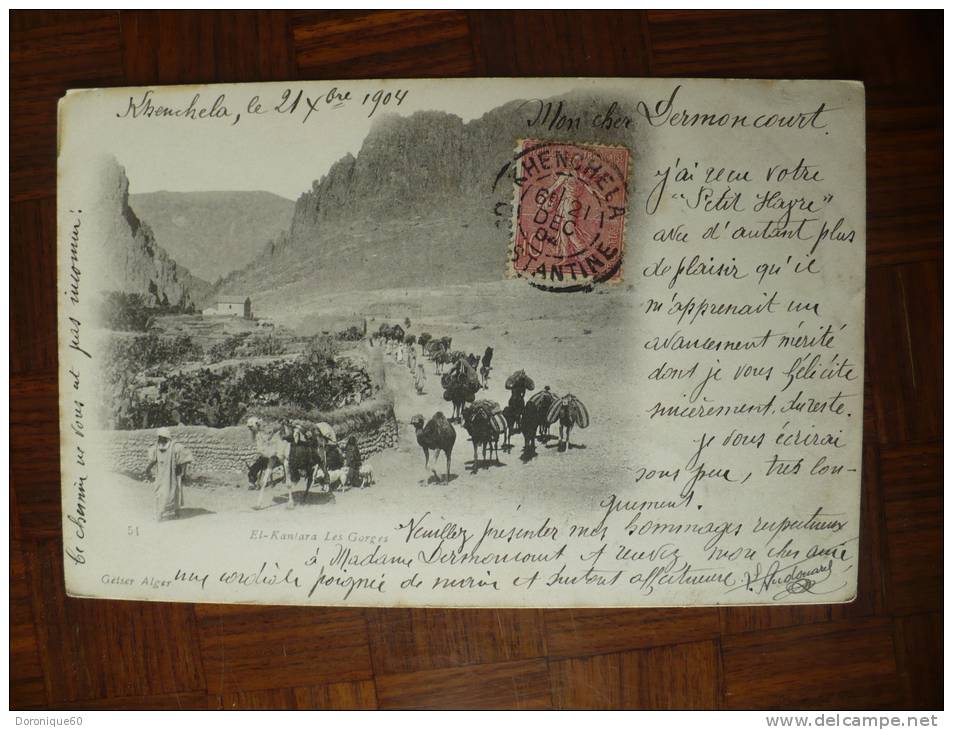 Khenchela, le 21 Xbre 1904
Mon cher Dermoncourt.
j'ai reçu votre
"Petit Havre"
avec d'autant plus
de plaisir qu'il
m'apprenait un
avancement mérité
dont je vous félicite
sincèrement, du reste.
je vous écrirai
sous peu, très lon-
guement.
Veuillez présenter mes hommages respectueux
à Madame Dermoncourt et recevez mon cher ami
une cordiale poignée de main et surtout affectueuse
Audouard
Ce chemin ne vous est pas inconnu!
KHENCHELA
21
DEC
04
CONSTANTINE
10
51
El-Kantara Les Gorges
Geiser Alger
Doronique60
www.delcampe.net